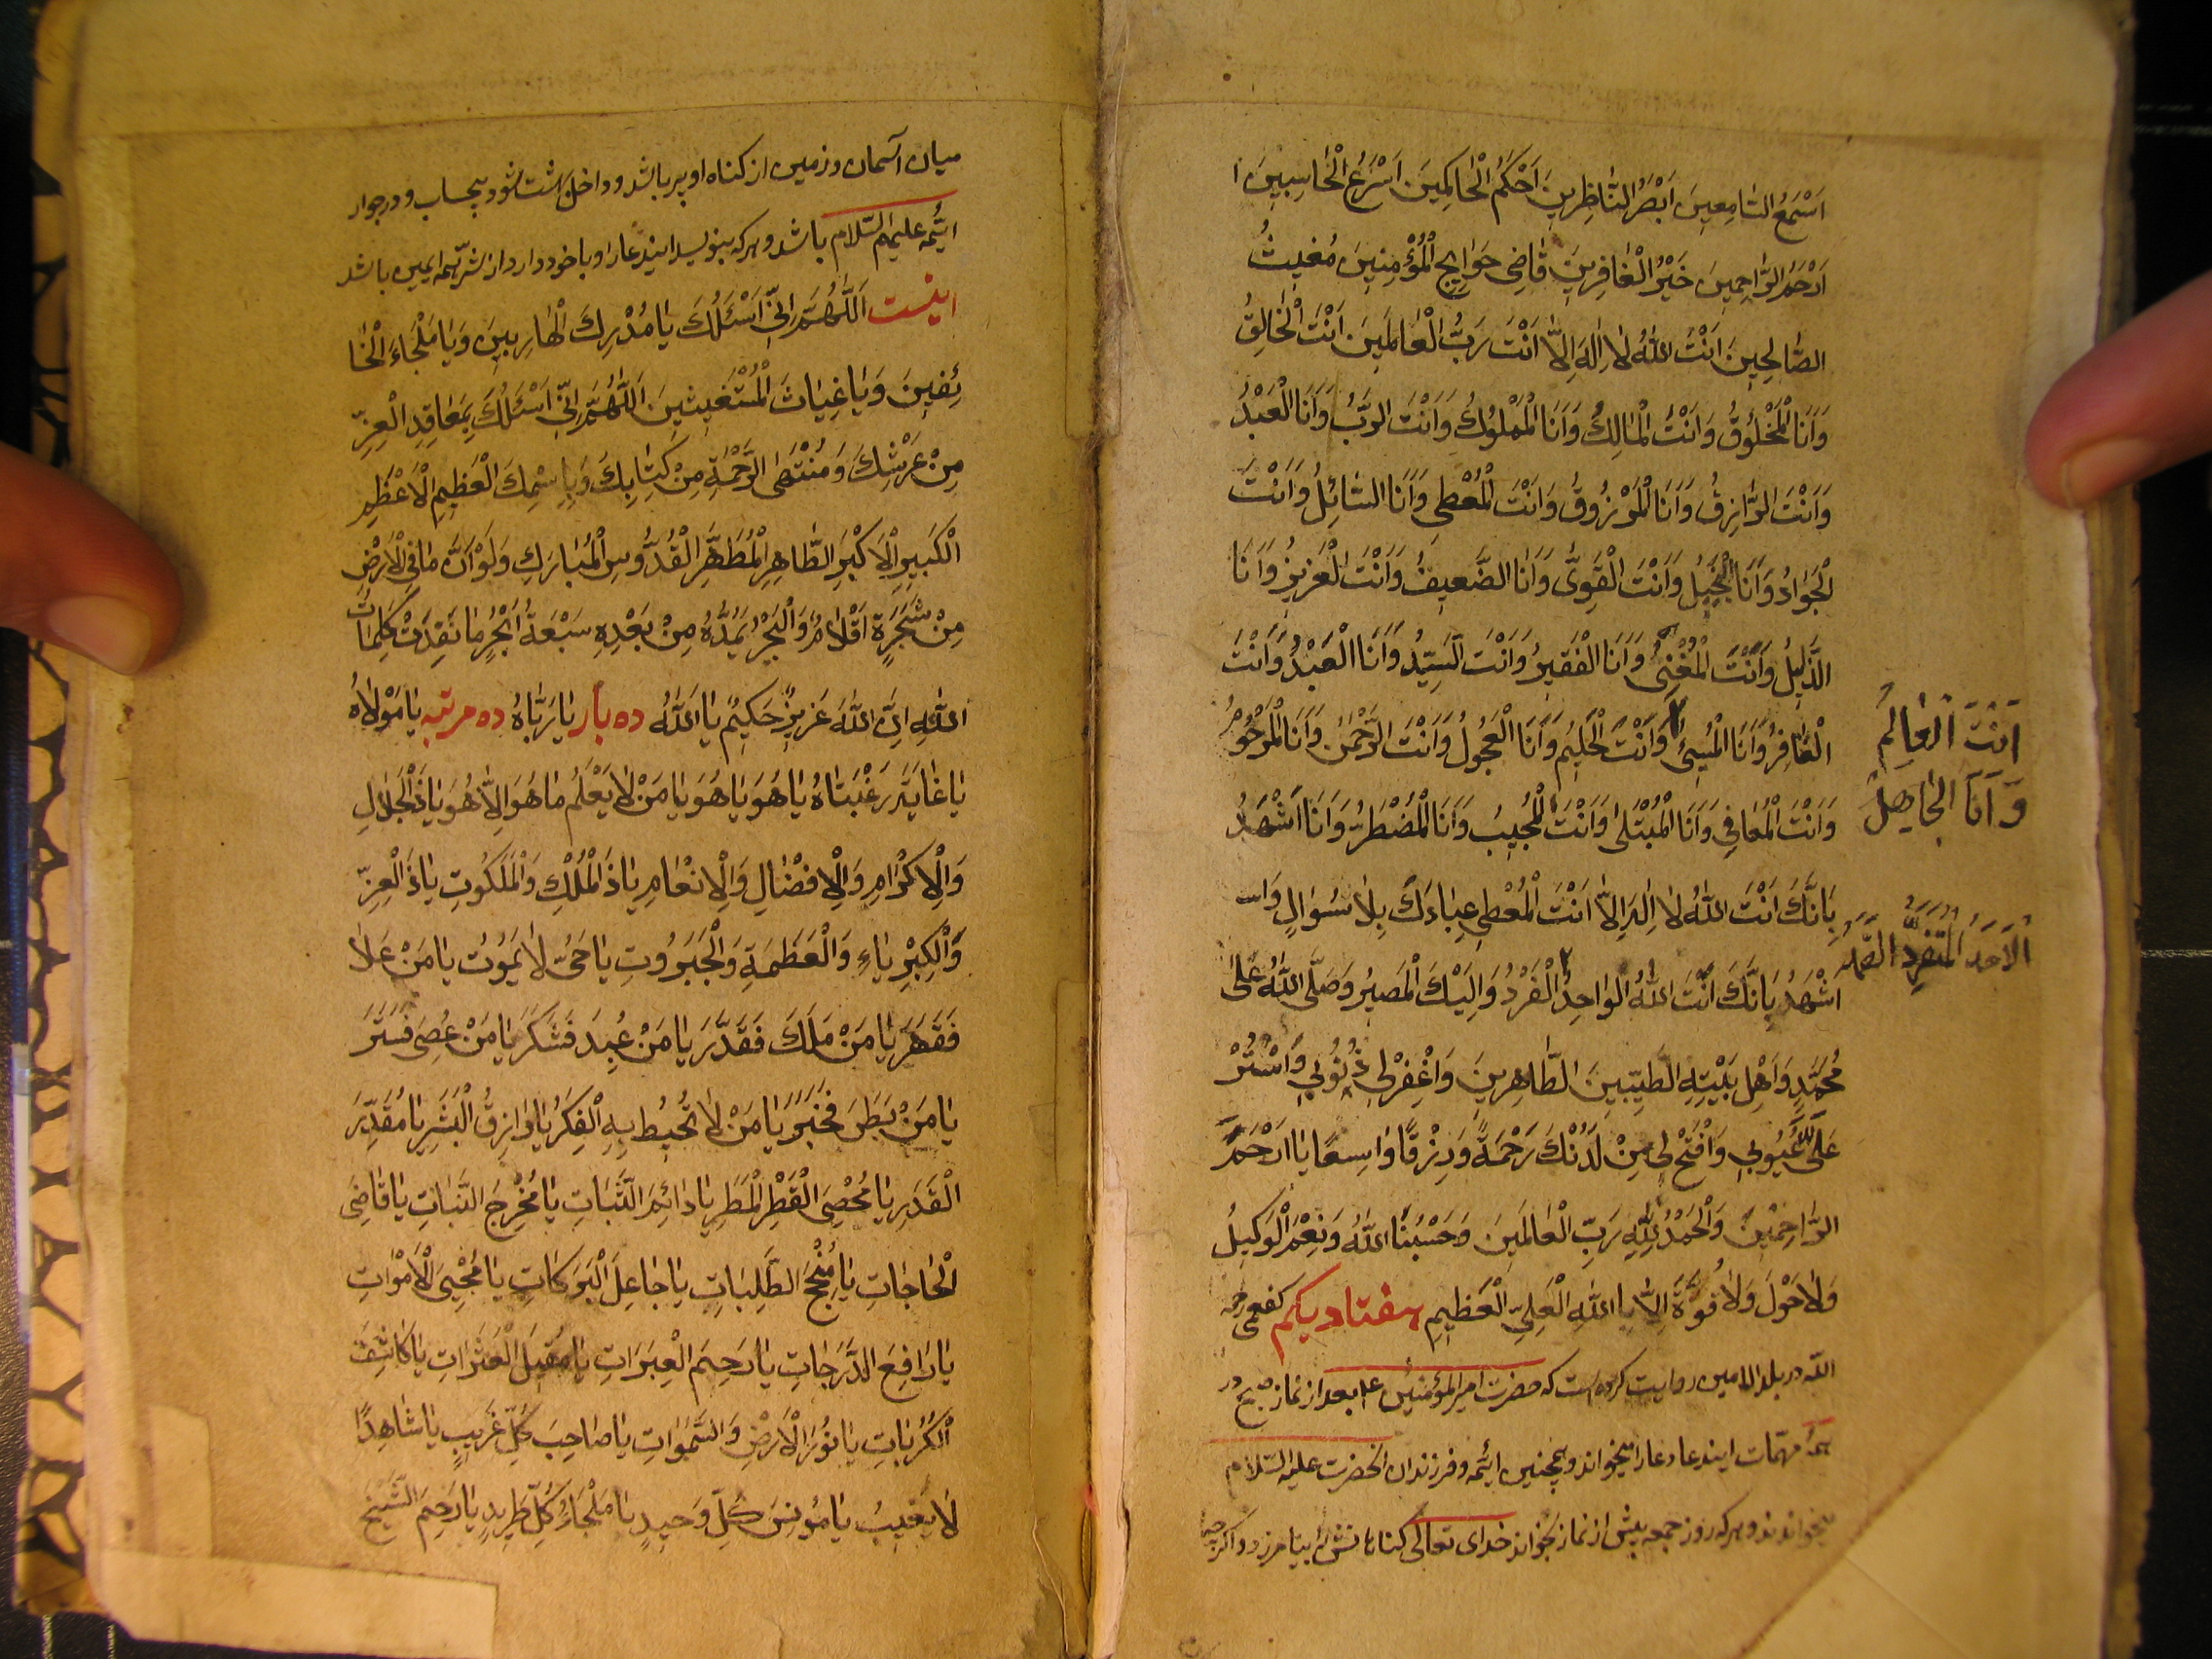 اَسْمَعُ السّٰامِعِينَ اَبْصَرُ النّٰاظِرِينَ اَحْكَمُ الْحٰاكِمِينَ اَسْرَعُ الْحٰاسِبِينَ
اَرْحَمُ الرّٰاحِمِينَ خَيْرُ الْغٰافِرِينَ قٰاضِى حَوٰايِجِ الْمُؤْمِنِينَ مُغِيثُ
الصّٰالِحِينَ اَنْتَ اللّٰهُ لٰا اِلٰهَ اِلّٰا اَنْتَ رَبُّ الْعٰالَمِينَ اَنْتَ الْخٰالِقُ
وَاَنَا الْمَخْلُوقُ وَاَنْتَ الْمٰالِكُ وَاَنَا الْمَمْلُوكُ وَاَنْتَ الرَّبُّ وَاَنَا الْعَبْدُ
وَاَنْتَ الرّٰازِقُ وَاَنَا الْمَرْزُوقُ وَاَنْتَ الْمُعْطِى وَاَنَا السّٰائِلُ وَاَنْتَ
الْجَوٰادُ وَاَنَا الْبَخِيلُ وَاَنْتَ الْقَوِىُّ وَاَنَا الضَّعِيفُ وَاَنْتَ الْعَزِيزُ وَاَنَا
الذَّلِيلُ وَاَنْتَ الْمُغْنِىُّ وَاَنَا الْفَقِيرُ وَاَنْتَ السَّيِّدُ وَاَنَا الْعَبْدُ وَاَنْتَ
الْغٰافِرُ وَاَنَا الْمُسِىءُ وَاَنْتَ الْحَلِيمُ وَاَنَا الْعَجُولُ وَاَنْتَ الرَّحْمٰنُ وَاَنَا الْمَرْحُومُ
اَنْتَ الْعٰالِمُ
وَاَنَا الْجٰاهِلُ
وَاَنْتَ الْمُعٰافِى وَاَنَا الْمُبْتَلىٰ وَاَنْتَ الْمُجِيبُ وَاَنَا الْمُضْطَرُّ وَاَنَا اَشْهَدُ
بِاَنَّكَ اَنْتَ اللّٰهُ لٰا اِلٰهَ اِلّٰا اَنْتَ الْمُعْطِى عِبٰادَكَ بِلٰا سُؤَالٍ وَا
اَشْهَدُ بِاَنَّكَ اَنْتَ اللّٰهُ الْوٰاحِدُ الْفَرْدُ وَاِلَيْكَ الْمَصِيرُ وَصَلَّى اللّٰهُ عَلىٰ
الْاَحَدُ الْمُتَفَرِّدُ الصَّمَدُ
مُحَمَّدٍ وَاَهْلِ بَيْتِهِ الطَّيِّبِينَ الطّٰاهِرِينَ وَاغْفِرْلِى ذُنُوبِى وَاسْتُرْ
عَلَىَّ عُيُوبِى وَافْتَحْ لِى مِنْ لَدُنْكَ رَحْمَةً وَرِزْقًا وٰاسِعًا يٰا اَرْحَمَ
الرّٰاحِمِينَ وَالْحَمْدُ لِلّٰهِ رَبِّ الْعٰالَمِينَ وَحَسْبُنَا اللّٰهُ وَنِعْمَ الْوَكِيلُ
وَلٰا حَوْلَ وَلٰا قُوَّةَ اِلّٰا بِاللّٰهِ الْعَلِىِّ الْعَظِيمِ هفتاد یکم کفعمی رحمه
الله در بلد الامین روایت کرده است که حضرت امیر المؤمنین ع بعد از نماز صبح در
همهٔ مهمّات ایندعا را میخواند و همچنین ائمّه و فرزندان آنحضرت علیهم السّلام
میخواندند و هرکه روز جمعه پیش از نماز بخواند خدای تعالی گناهانش را بیامرزد و اگرچه
میان آسمان و زمین از کناه او پر باشد و داخل بهشت شود بیحساب و در جوار
ائمّه علیهم السّلام باشد و هر که بنویسد ایندعا را و با خود دارد از شرّ همه ایمن باشد
اینست اَللّٰهُمَّ اِنِّى اَسْئَلُكَ يٰا مُدْرِكَ الْهٰارِبِينَ وَيٰا مَلْجَاءَ الْخٰا
ئِفِينَ وَيٰا غِيٰاثَ الْمُسْتَغِيثِينَ اَللّٰهُمَّ اِنِّى اَسْئَلُكَ بِمَعٰاقِدِ الْعِزِّ
مِنْ عَرْشِكَ وَمُنْتَهَى الرَّحْمَةِ مِنْ كِتٰابِكَ وَبِاِسْمِكَ الْعَظِيمِ الْاَعْظَمِ
الْكَبِيرِ الْاَكْبَرِ الطّٰاهِرِ الْمُطَهَّرِ الْقُدُّوسِ الْمُبٰارَكِ وَلَوْ اَنَّ مٰا فِى الْاَرْضِ
مِنْ شَجَرَةٍ اَقْلٰامٌ وَالْبَحْرُ يَمُدُّهُ مِنْ بَعْدِهِ سَبْعَةُ اَبْحُرٍ مٰا نَفِدَتْ كَلِمٰاتُ
اللّٰهِ اِنَّ اللّٰهَ عَزِيزٌ حَكِيمٌ يٰا اَللّٰهُ ده بار يٰا رَبّٰاهُ ده مرتبه يٰا مَوْلٰاهُ
يٰا غٰايَةَ رَغْبَتٰاهُ يٰا هُوَ يٰا هُوَ يٰا مَنْ لٰا يَعْلَمُ مٰا هُوَ اِلّٰا هُوَ يٰا ذَالْجَلٰالِ
وَالْاِكْرٰامِ وَالْاِفْضٰالِ وَالْاِنْعٰامِ يٰا ذَالْمُلْكِ وَالْمَلَكُوتِ يٰا ذَالْعِزِّ
وَالْكِبْرِيٰاءِ وَالْعَظَمَةِ وَالْجَبَرُوتِ يٰا حَىُّ لٰا يَمُوتُ يٰا مَنْ عَلٰا
فَقَهَرَ يٰا مَنْ مَلَكَ فَقَدَّرَ يٰا مَنْ عُبِدَ فَشَكَرَ يٰا مَنْ عُصِىَ فَسَتَرَ
يٰا مَنْ بَطَنَ فَخَبَرَ يٰا مَنْ لٰا تُحِيطُ بِهِ الْفِكَرُ يٰا رٰازِقَ الْبَشَرِ يٰا مُقَدِّرَ
الْقَدَرِ يٰا مُحْصِىَ الْقَطْرِ الْمَطَرِ يٰا دٰائِمَ الثَّبٰاتِ يٰا مُخْرِجَ النَّبٰاتِ يٰا قٰاضِىَ
الْحٰاجٰاتِ يٰا مُنْجِحَ الطَّلِبٰاتِ يٰا جٰاعِلَ الْبَرَكٰاتِ يٰا مُحْيِىَ الْاَمْوٰاتِ
يٰا رٰافِعَ الدَّرَجٰاتِ يٰا رٰحِمَ الْعَبَرٰاتِ يٰا مُقِيلَ الْعَثَرٰاتِ يٰا كٰاشِفَ
الْكُرُبٰاتِ يٰا نُورَ الْاَرْضِ وَالسَّمٰوٰاتِ يٰا صٰاحِبَ كُلِّ غَرِيبٍ يٰا شٰاهِدًا
لٰا يَغِيبُ يٰا مُونِسَ كُلِّ وَحِيدٍ يٰا مَلْجَاءَ كُلِّ طَرِيدٍ يٰا رٰحِمَ الشَّيْخِ